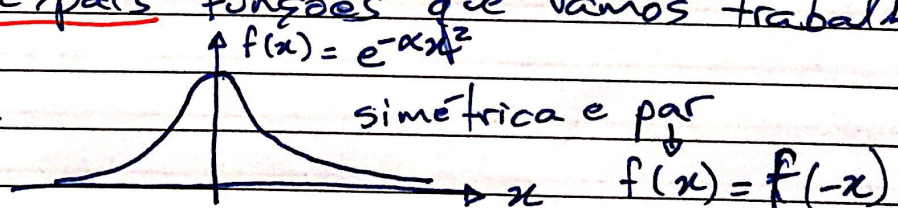 funções que vamos
f(x) = e^{-αx^2}
simétrica e par
↓
x f(x) = f(-x)